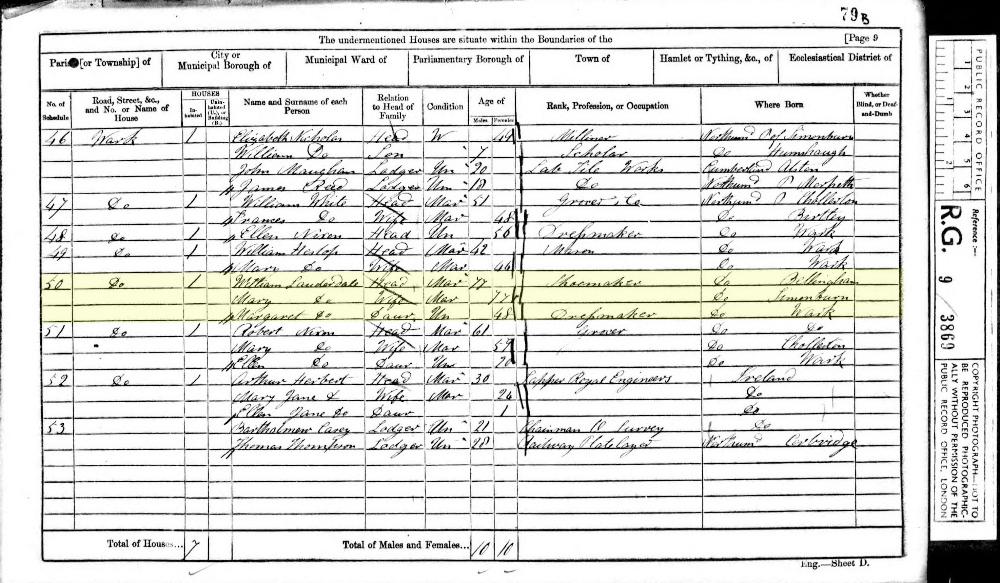 79B
The undermentioned Houses are situate within the Boundaries of the [Page 9
Parish [or Township] of City or Municipal Borough of Municipal Ward of Parliamentary Borough of Town of Hamlet or Tything, &c., of Ecclesiastical District of
No. of Schedule Road, Street, &c., and No. or Name of House HOUSES In-habited Unin-habited (U.), or Building (B.) Name and Surname of each Person Relation to Head of Family Condition Age of Males Females Rank, Profession, or Occupation Where Born Whether Blind, or Deaf-and-Dumb
46 Wark 1 Elizabeth Nicholson Head W 49 Milliner Northumd Simonburn
William Do Son 7 Scholar Do Humshaugh
John Maughan Lodger Un 20 Lab Tile Works Cumberland Alston
James Reed Lodger Un 18 Do Northumd Morpeth
47 Do 1 William White Head Mar 51 Grocer &c Northumd Chollerton
Frances Do Wife Mar 48 Do Birtley
48 Do 1 Ellen Nixon Head Un 56 Dressmaker Do Wark
49 Do 1 William Heslop Head Mar 42 Mason Do Wark
Mary Do Wife Mar 46 Do Wark
50 Do 1 William Lauderdale Head Mar 77 Shoemaker Do Bellingham
Mary Do Wife Mar 77 Do Simonburn
Margaret Do Daur Un 48 Dressmaker Do Wark
51 Do 1 Robert Nixon Head Mar 61 Grocer Do Do
Mary Do Wife Mar 59 Do Chollerton
Ellen Do Daur Un 20 Do Wark
52 Do 1 Arthur Herbert Head Mar 30 Sapper Royal Engineers Ireland
Mary Jane Wife Mar 26 Do
Ellen Jane Do Daur 1 Do
53 Bartholmew Casey Lodger Un 21 Chainman O Survey Do
Thomas Thompson Lodger Un 28 Railway Platelayer Northumd Corbridge
Total of Houses... 7 Total of Males and Females... 10 10
Eng.—Sheet D.
PUBLIC RECORD OFFICE
1 2 3 4 5 6
Reference :-
R.G. 9 3869
COPYRIGHT PHOTOGRAPH—NOT TO BE REPRODUCED PHOTOGRAPHICALLY WITHOUT PERMISSION OF THE PUBLIC RECORD OFFICE, LONDON